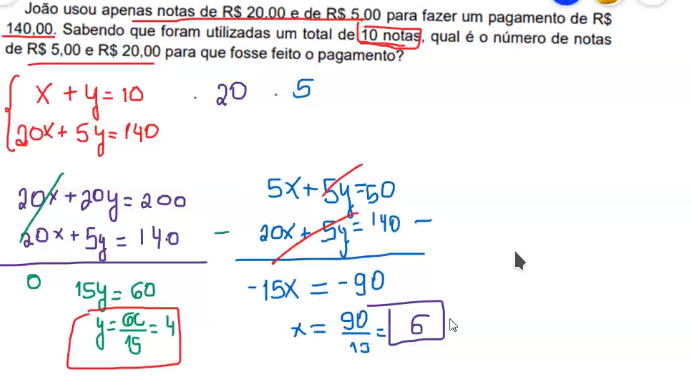 João usou apenas notas de R$ 20,00 e de R$ 5,00 para fazer um pagamento de R$
140,00. Sabendo que foram utilizadas um total de 10 notas, qual é o número de notas
de R$ 5,00 e R$ 20,00 para que fosse feito o pagamento?
x + y = 10 · 20 · 5
20x + 5y = 140
20x + 20y = 200
20x + 5y = 140 -
0 15y = 60
y = 60/15 = 4
5x + 5y = 50
20x + 5y = 140 -
-15x = -90
x = 90/15 = 6